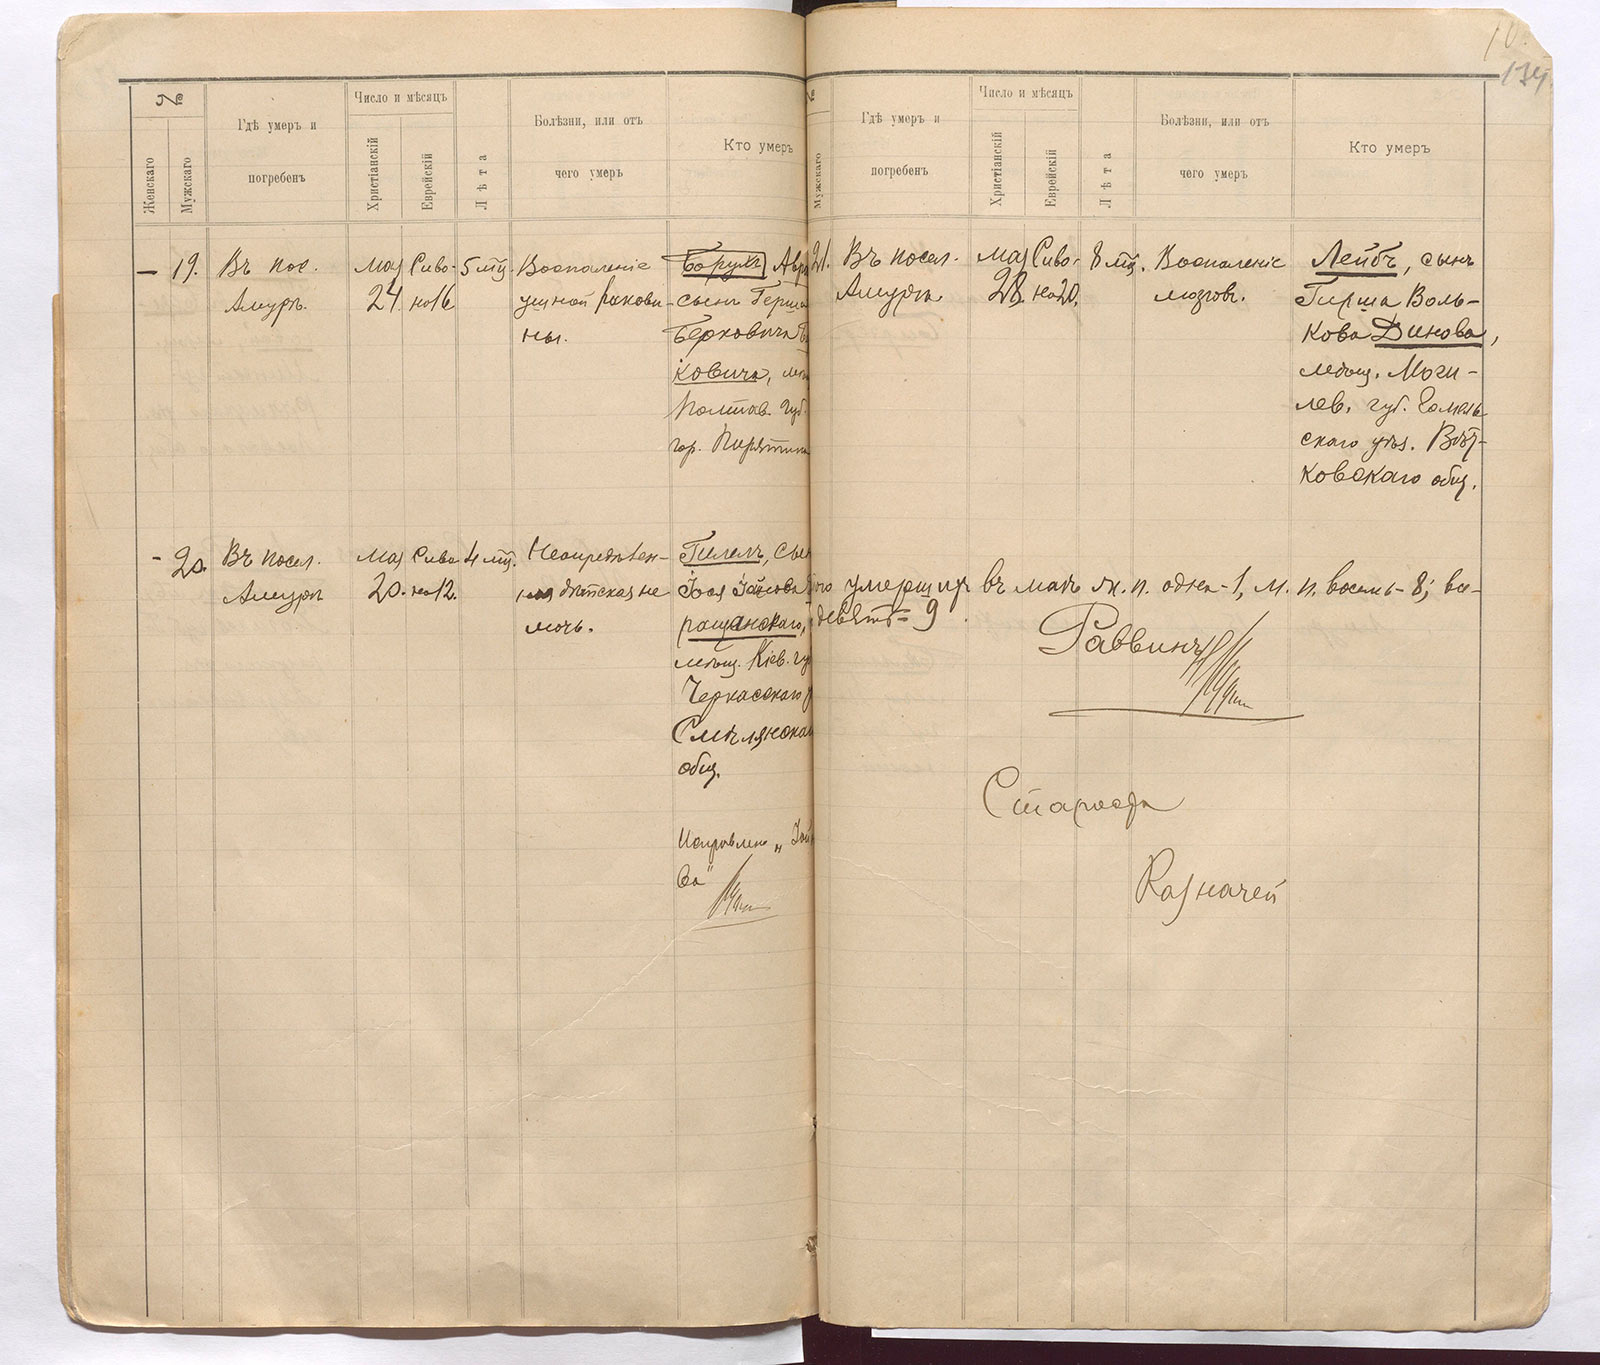 №
Женскаго
Мужскаго
Гдѣ умеръ и
погребенъ
Число и мѣсяцъ
Христіанскій
Еврейскій
Лѣта
Болѣзни, или отъ
чего умеръ
Кто умеръ
— 19.
Въ пос.
Амуръ.
Мая
24
Сиво-
на 16
5 мѣс.
Воспаленіе
ушной ракови-
ны.
Борухъ Авра
сынъ Герша
Берковича
ковича,
Полтав. губ.
гор. Пирятина
- 20.
Въ посел.
Амуръ
Мая
20.
Сива
на 12.
4 мѣс.
Неопредѣлен-
ная дѣтская не
мочь.
Гилель, сынъ
Іося
ращанскаго,
мѣщ. Кіев. гу
Черкасскаго у
Смѣлянскаго
общ.
Исправлено „
ва"
134
№
Мужскаго
Гдѣ умеръ и
погребенъ
Число и мѣсяцъ
Христіанскій
Еврейскій
Лѣта
Болѣзни, или отъ
чего умеръ
Кто умеръ
21.
Въ посел.
Амуръ
Мая
28
Сиво-
на 20.
8 мѣс.
Воспаленіе
мозговъ.
Лейбъ, сынъ
Гирша Воль-
кова Динова,
мѣщ. Моги-
лев. губ. Гомель
скаго уѣз. Вѣт-
ковскаго общ.
умершихъ въ маѣ ж. п. одна - 1, м. п. восемь - 8; все-
девять - 9
Раввинъ
Староста
Казначей